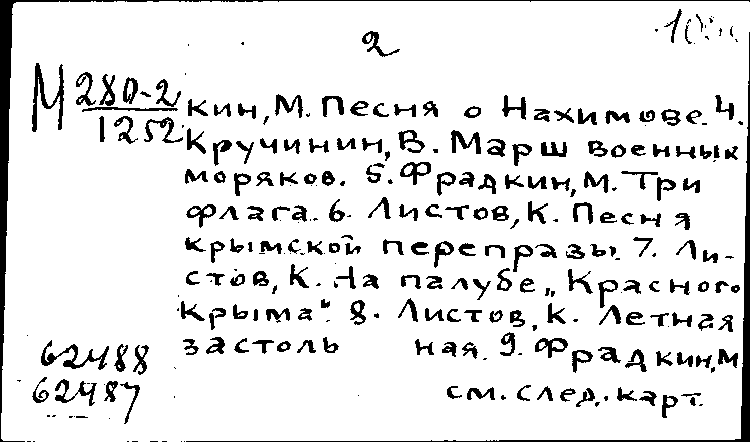 2
М 280-2
1252
кин, М. Песня о Нахимове. 4.
Кручинин, В. Марш военных
моряков. 5. Фрадкин, М. Три
флага. 6. Листов, К. Песня
крымской переправы. 7. Ли-
стов, К. На палубе „Красного
Крыма". 8. Листов, К. Летная
застоль ная. 9. Фрадкин, М
62488
62487
см. след. карт.